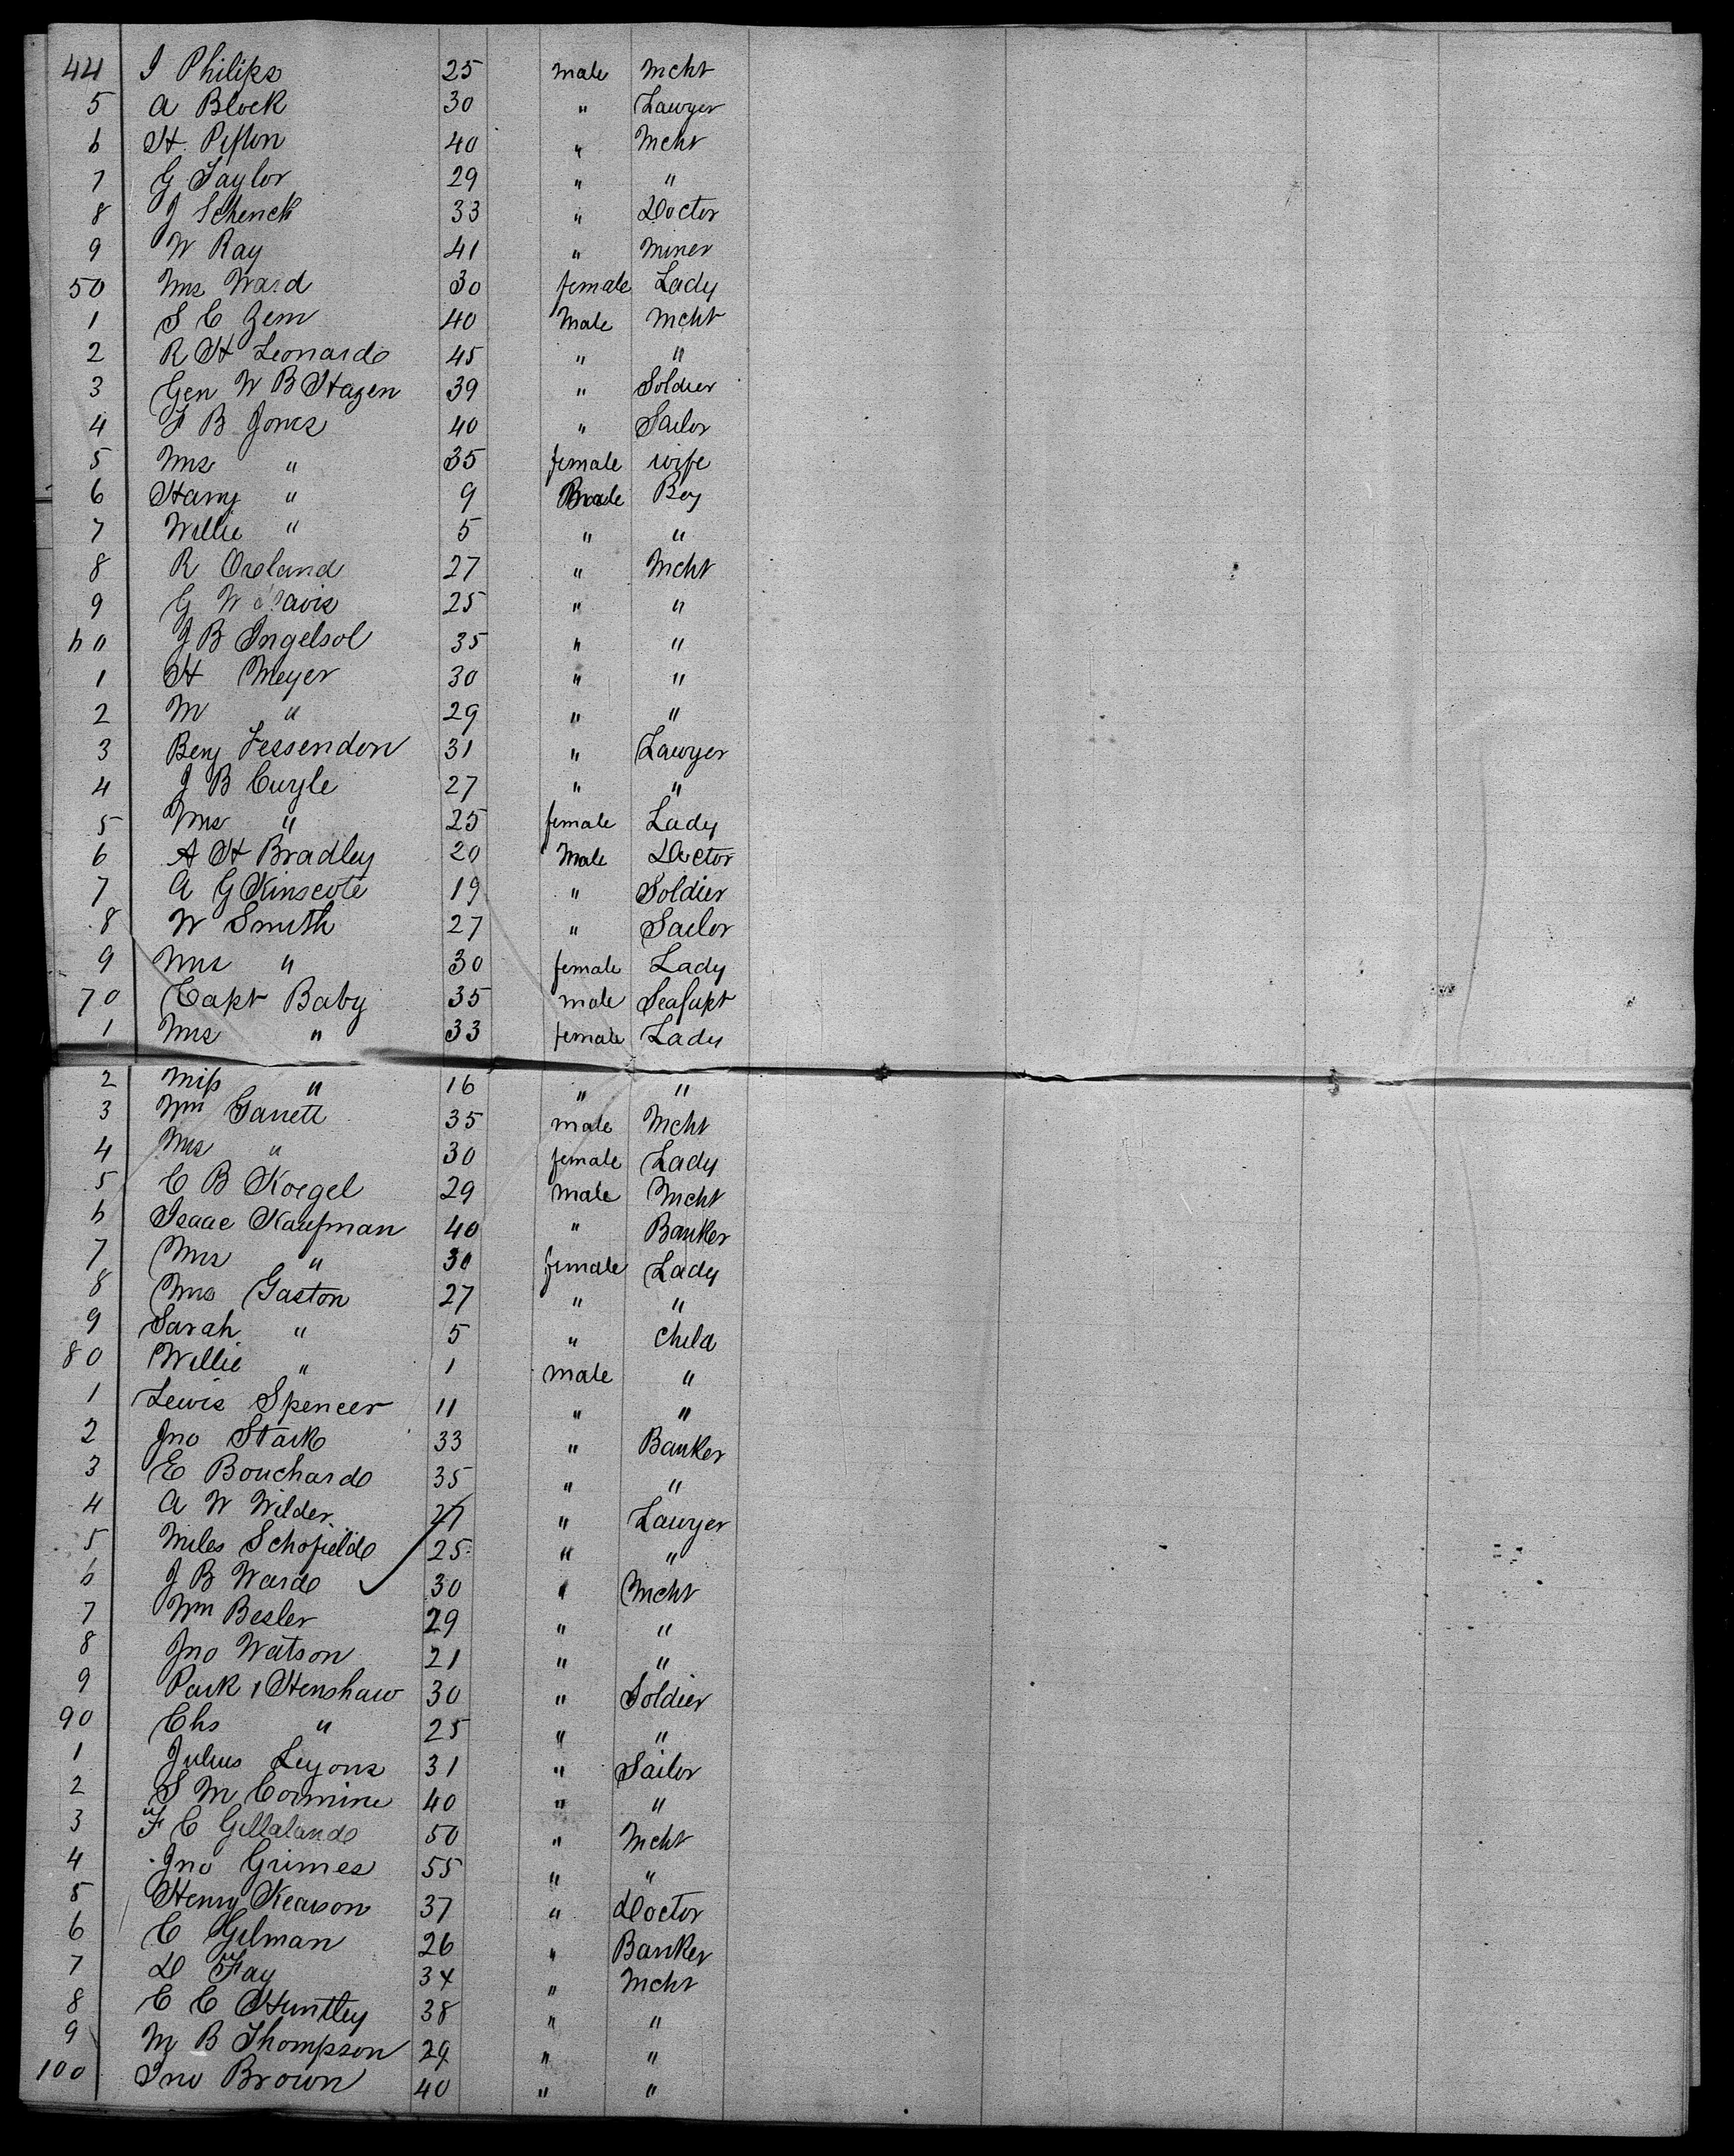 44 I Philips 25 male Mcht
5 A Block 30 " Lawyer
6 H. 40 " Mcht
7 G Taylor 29 " "
8 J Schenck 33 " Doctor
9 W Ray 41 " Miner
50 Mrs Ward 30 female Lady
1 S C Zem 40 Male Mcht
2 R H Leonard 45 " "
3 Gen W B Hazen 39 " Soldier
4 B Jones 40 " Sailor
5 Mrs " 35 female wife
6 Harry " 9 Boy
7 Willie " 5 " "
8 R 27 " Mcht
9 G W Davis 25 " "
60 J B Ingelsol 35 " "
1 H Meyer 30 " "
2 M " 29 " "
3 Benj Fessendon 31 " Lawyer
4 J B Cuyle 27 " "
5 Mrs " 25 female Lady
6 A H Bradley 20 Male Doctor
7 A G Kinscote 19 " Soldier
8 W Smith 27 " Sailor
9 Mrs " 30 female Lady
70 Capt Baby 35 male
1 Mrs " 33 female Lady
2 Miss " 16 " "
3 Wm Garrett 35 male Mcht
4 Mrs " 30 female Lady
5 C B Koegel 29 male Mcht
6 Isaac Kaufman 40 " Banker
7 Mrs " 30 female Lady
8 Mrs Gaston 27 " "
9 Sarah " 5 " Child
80 Willie " 1 male "
1 Lewis Spencer 11 " "
2 Jno Stark 33 " Banker
3 E Bouchard 35 " "
4 A W Wilder 27 " Lawyer
5 Miles Schofield 25 " "
6 J B Ward 30 " Mcht
7 Wm Besler 29 " "
8 Jno Watson 21 " "
9 Park Henshaw 30 " Soldier
90 Chs " 25 " "
1 Julius Lyons 31 " Sailor
2 S M Cormine 40 " "
3 F C Gillaland 50 " Mcht
4 Jno Grimes 55 " "
5 Henry Kearson 37 " Doctor
6 C Gilman 26 " Banker
7 D Fay 34 " Mcht
8 C C Huntley 38 " "
9 M B Thompson 29 " "
100 Jno Brown 40 " "